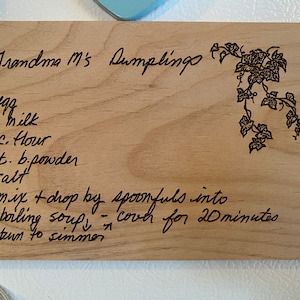 Grandma M's Dumplings
egg
milk
c. flour
t. b.powder
salt
mix + drop by spoonfuls into
boiling soup - cover for 20 minutes
turn to simmer